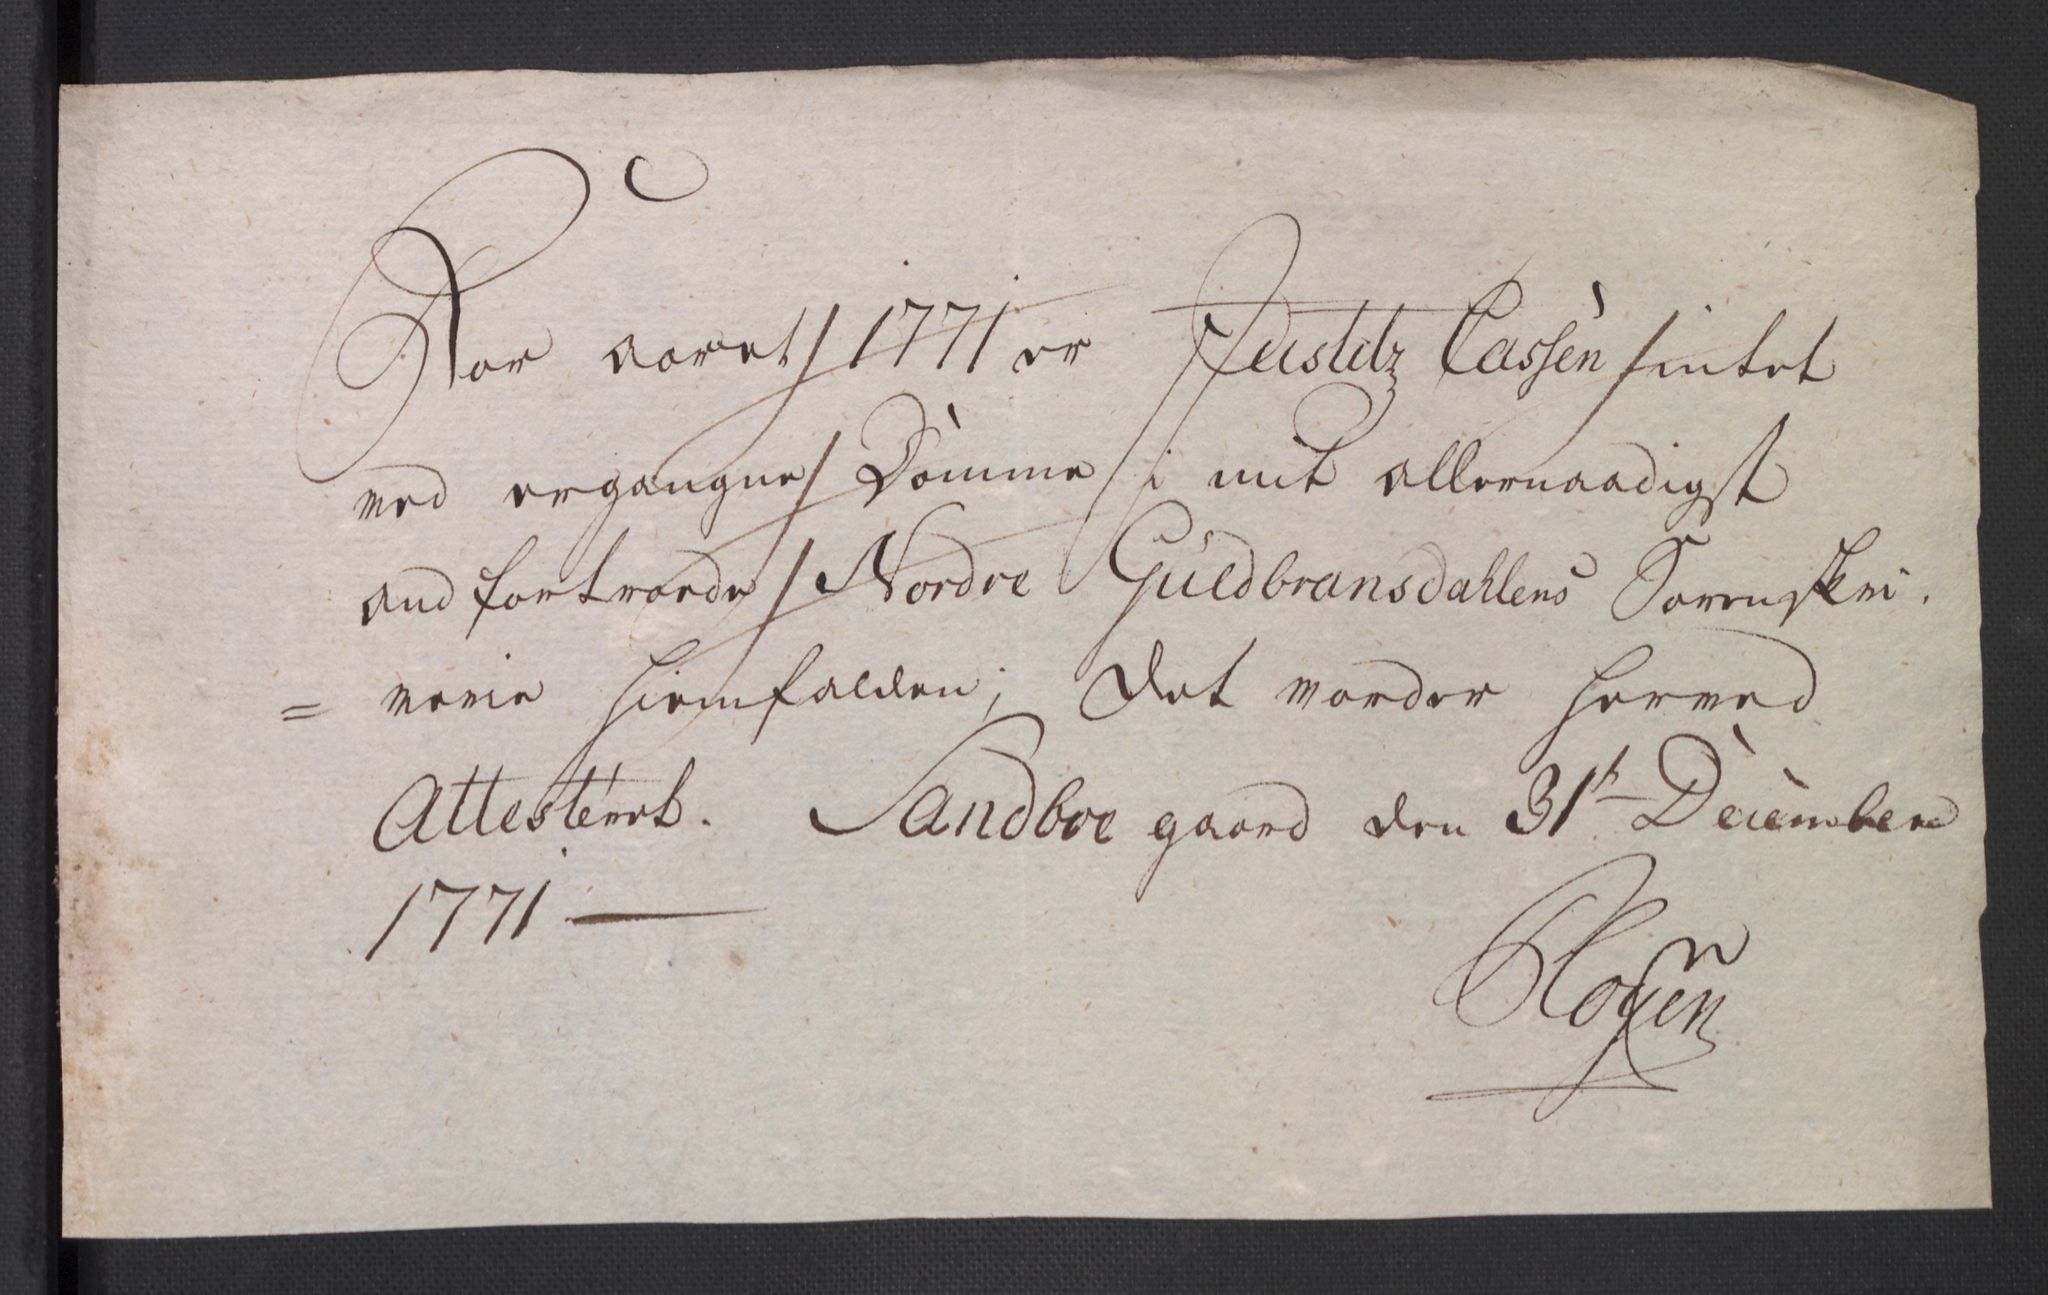 For aaret 1771 er Justitz Cassen intet
ved ergangne Domme i mit allernaadigst
andfortroede Nordre Guldbransdahlens Sorenskri-
= verie hiemfalden; Det vorder herved
Attesteret. Sandboe gaard den 31t Decembere
1771